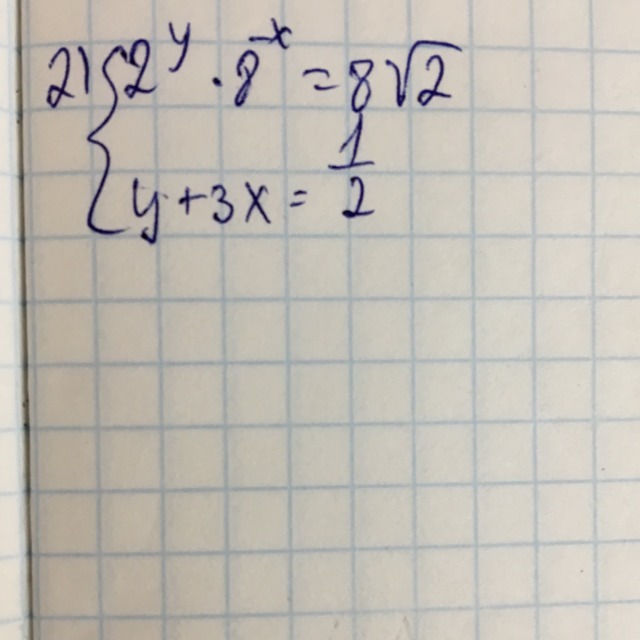 2) { 2^y · 8^-x = 8√2
y + 3x = 1/2